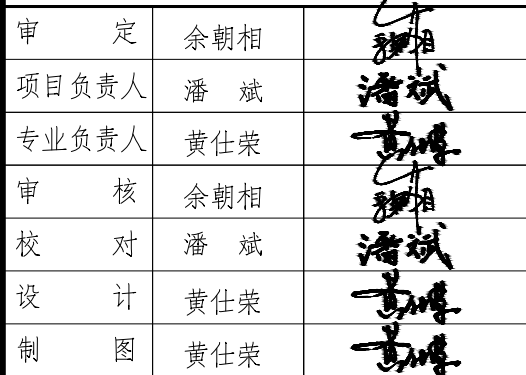 审 定 余朝相 余朝相
项目负责人 潘 斌 潘斌
专业负责人 黄仕荣 黄仕荣
审 核 余朝相 余朝相
校 对 潘 斌 潘斌
设 计 黄仕荣 黄仕荣
制 图 黄仕荣 黄仕荣